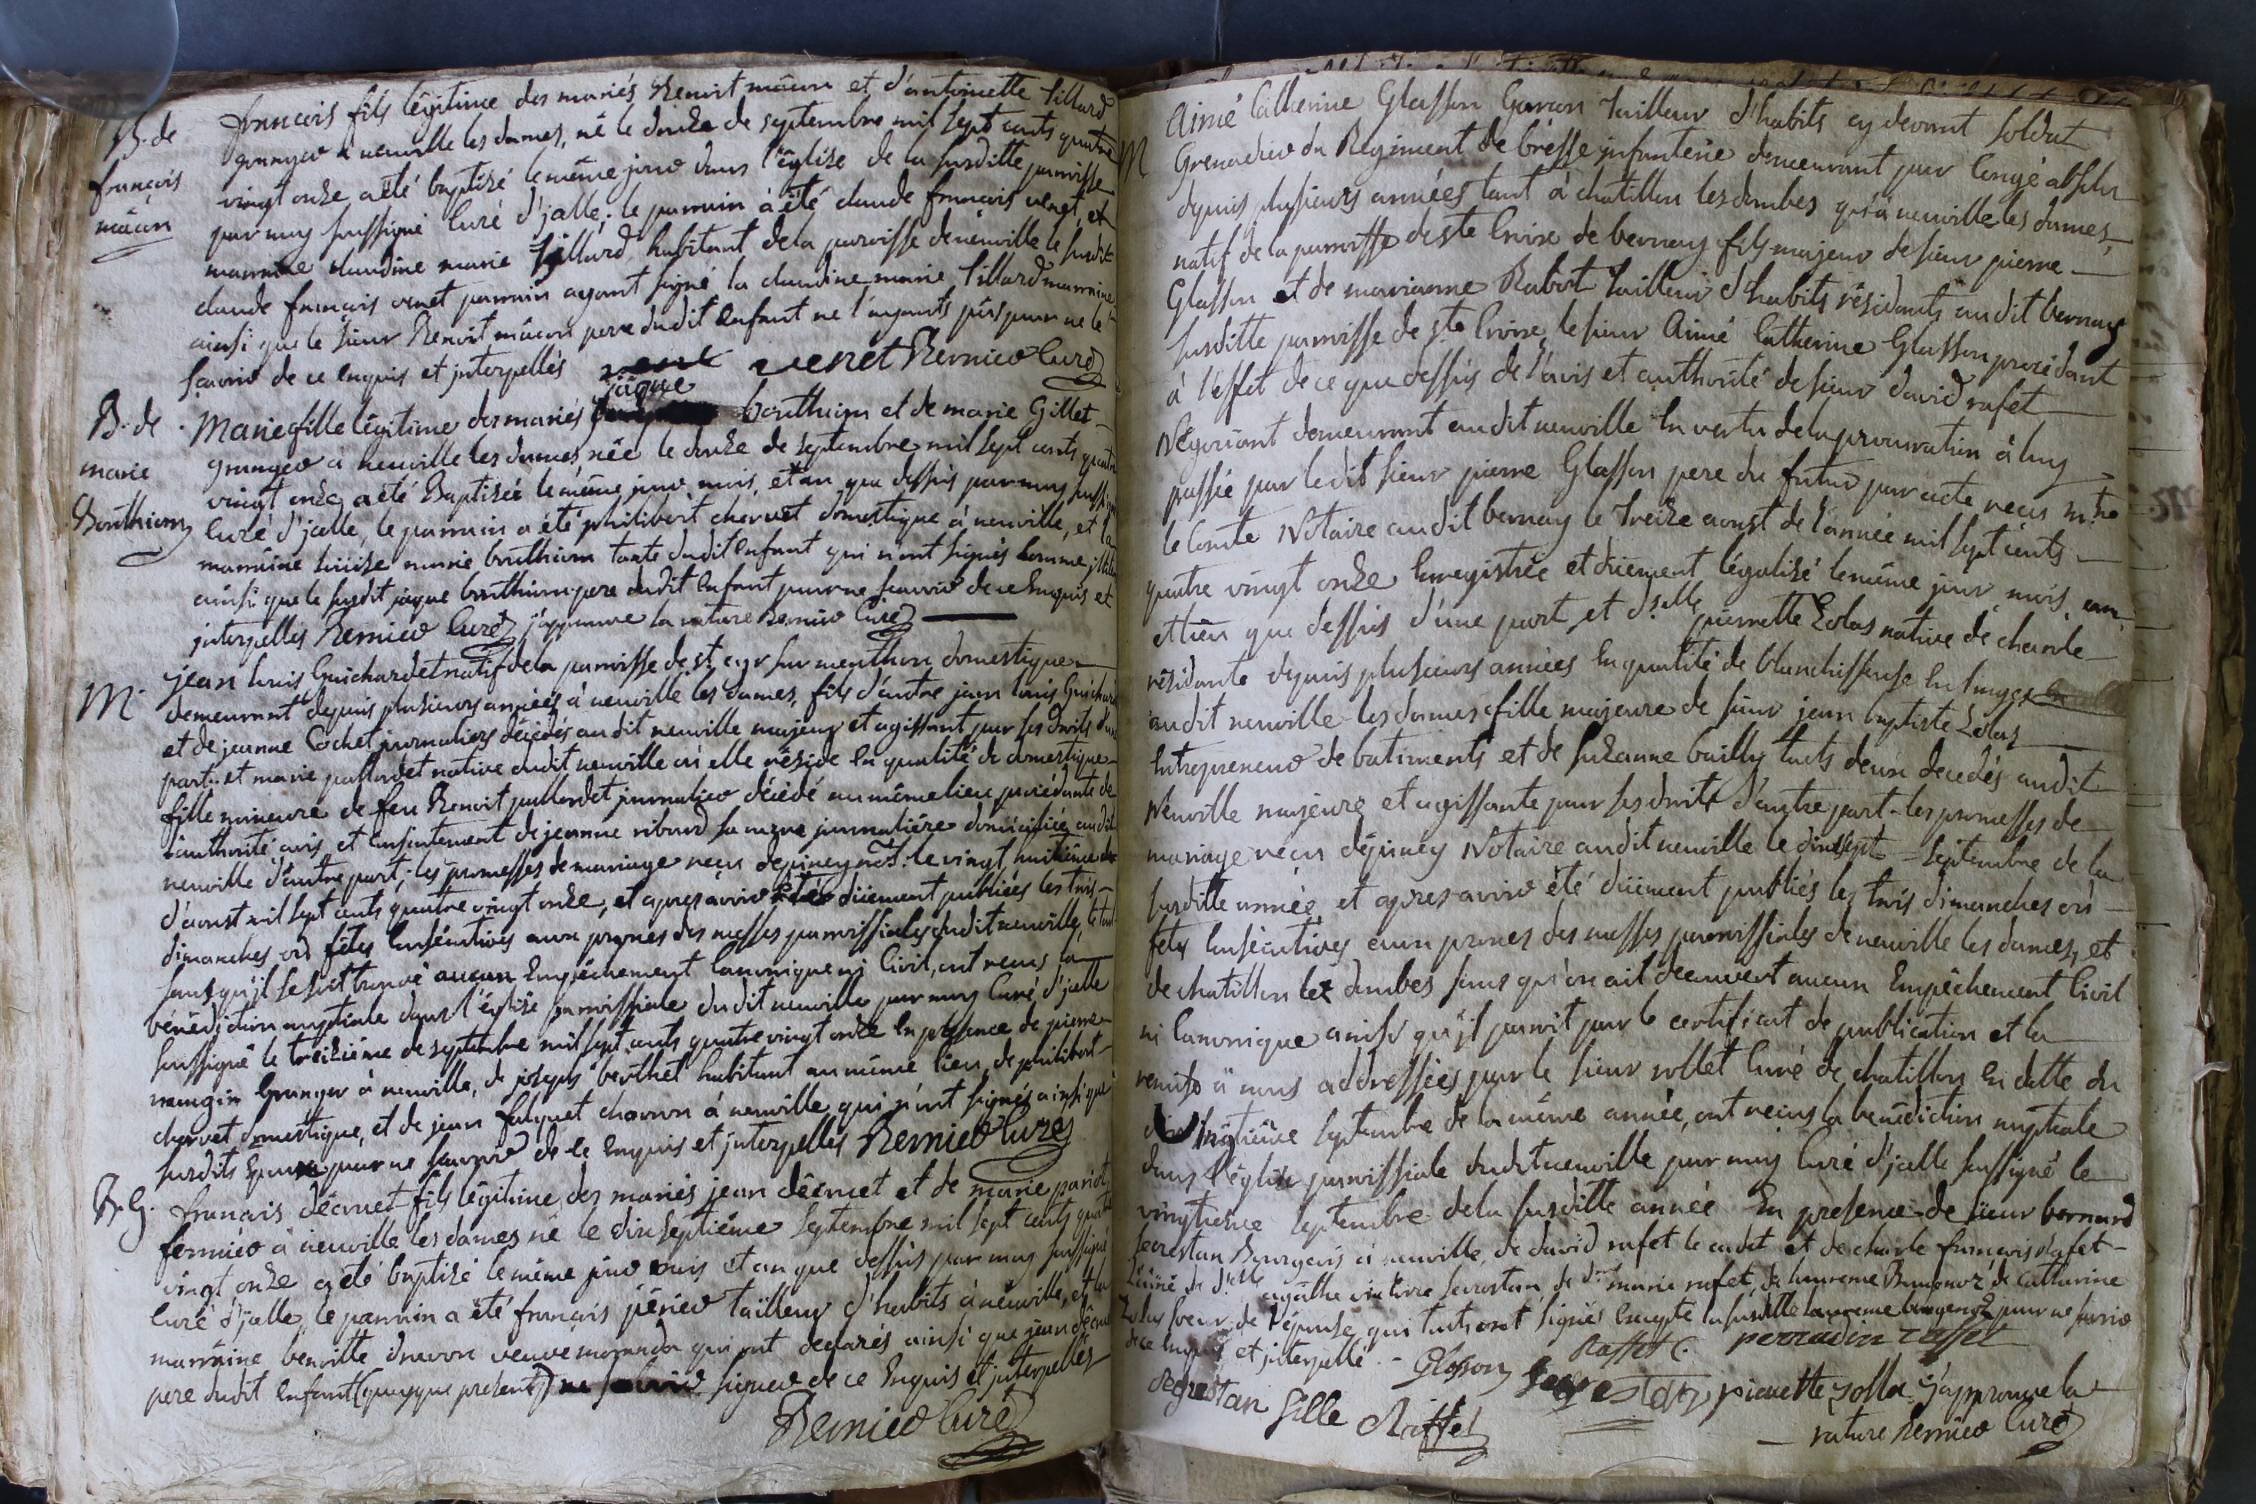 B. de
françois
mâcon
françois fils légitime des mariés Benoit mâcon et d'antoinette Tillard
granger à neuville les dames, né le douze de septembre mil sept cents quatre
vingt onze a été baptizé le même jour dans l'église de la susditte paroisse
par moy soussigné Curé d'jcelle; le parrain à été claude françois venet, et
marraine claudine marie Tillard habitant de la paroisse de neuville le susdit
claude françois venet parrain ayant signé la claudine marie Tillard marraine
ainsi que le sieur Benoit mâcon pere dudit enfant ne l'ayants pûs pour ne le
sçavoir de ce enquis et jnterpellés venet Bernier Curé
B. de
marie
Bonthiem
Marie fille légitime des mariés jaque bonthiem et de marie Gillet
granger à neuville les dames née le douze de septembre mil sept cents quatre
vingt onze a été Baptizée le même jour mois, et an que dessus par moy soussigné
Curé d'jcelle, le parrain a été philibert chervet domestique à neuville, et la
marraine marie bonthiem tante dudit enfant qui n'ont signés
ainsi que le susdit jaque bonthiem pere dudit enfant pour ne sçavoir de ce enquis et
jnterpellés Bernier Curé j'approuve la rature Bernier Curé
M.
jean louis Guichardet natif de la paroisse de st cyr sur menthon domestique
demeurant depuis plusieurs années à neuville les dames, fils d'autre jean louis Guichardet
et de jeanne Cochet journaliers décédés audit neuville majeur et agissant pour ses droits d'une
part. et marie paillardet native dudit neuville où elle réside en qualité de domestique
fille mineure de feu Benoit paillardet journalier décédé au même lieu procédante de
l'authorité avis, et consentement de jeanne ribaud sa mere journaliére domiciliée audit
neuville d'autre part; les promesses de mariage recu depiney not. le vingt huitième de
d'aoust mil sept cents quatre vingt onze, et apres avoir étés düement publiées les trois
dimanches ou fêtes Consécutives aux prones des messes paroissiales dudit neuville, le tout
sans qu'jl se soit trouvé aucun Empêchement Canonique ni Civil, ont recus la
bénédiction nuptiale dans l'église paroissiale dudit neuville par moy Curé d'jcelle
soussigné le treizième de septembre mil sept cents quatre vingt onze en presence de pierre
maugin Granger à neuville, de joseph berthet habitant au même lieu, de philibert
chervet domestique, et de jean falquet charron à neuville qui n'ont signés ainsi que
susdits Epoux pour ne sçavoir de ce enquis et jnterpellés Bernier Curé
B. G.
françois décruet fils légitime des mariés jean décruet et de marie pariot
fermier à neuville les dames né le dixseptiéme septembre mil sept cents quatre
vingt onze a été baptizé le même jour mois et an que dessus par moy soussigné
Curé d'jcelle, le parrain a été françois périer tailleur d'habits à neuville, et la
marraine benoitte veuve qui ont declarés ainsi que jean décruet
pere dudit enfant (quoyque présent) ne sçavoir signer de ce Enquis et jnterpellés
Bernier Curé
M
Aimé Catherine Glasson Garçon Tailleur d'habits cy devant soldat
Grenadier du Régiment de bresse jnfanterie demeurant par Congé absolu
depuis plusieurs années tant à chatillon les dombes qu'à neuville les dames,
natif de la paroisse de ste Croix de bernay fils majeur de sieur pierre
Glasson et de marianne Rabot Tailleur d'habits résidants audit bernay
susditte paroisse de ste Croix, le sieur Aimé Catherine Glasson procédant
à l'effet de ce que dessus de l'avis et authorité de sieur david rafet
Négociant demeurant audit neuville en vertu de la procuration à luy
passée par ledit sieur pierre Glasson pere du futur par acte recu mtre
le Comte Notaire audit bernay le treize aoust de l'année mil sept cents
quatre vingt onze Enregistrée et düement légalisé le même jour mois an,
et lieu que dessus d'une part, et dselle pierrette Zolas native de
résidante depuis plusieurs années en qualité de blanchisseuse en linge
audit neuville les dames fille majeure de sieur jean baptiste Zolas
Entrepreneur de batiments et de suzanne bailly touts deux decédés audit
Neuville majeure et agissante pour ses droits d'autre part - les promesses de
mariage recu depiney Notaire audit neuville le dixsept septembre de la
susditte année, et apres avoir été düement publiés les trois dimanches ou
fetes Consécutives aux prones des messes paroissiales de neuville les dames, et
de chatillon les dombes sans qu'on ait decouvert aucun Empêchement Civil
ni Canonique ainsi qu'jl paroit par le certificat de publication et la
remise à nous addressées par le sieur rollet Curé de chatillon en datte du
septembre de la même année, ont recus la bénédiction nuptiale
dans l'église paroissiale dudit neuville par moy Curé d'jcelle soussigné le
vingtiéme septembre de la susditte année En presence de sieur bernard
secrestan Bourgeois à neuville, de david rafet le cadet et de charle françois rafet
l'ainé, de dlle agathe victoire secrestan, de dme marie rafet, de laurence, de Catherine
Zolas soeur de l'épouse, qui touts ont signés excepté la susditte laurence pour ne sçavoir
de ce enquis et jnterpellé. - Glasson Raffet C. perradin raffet
Segrestan fille Raffet Segrestan pierette zolla j'approuve la
rature Bernier Curé